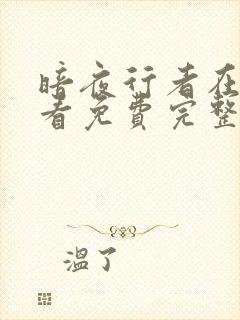 暗夜行者在
看免费完整
温了